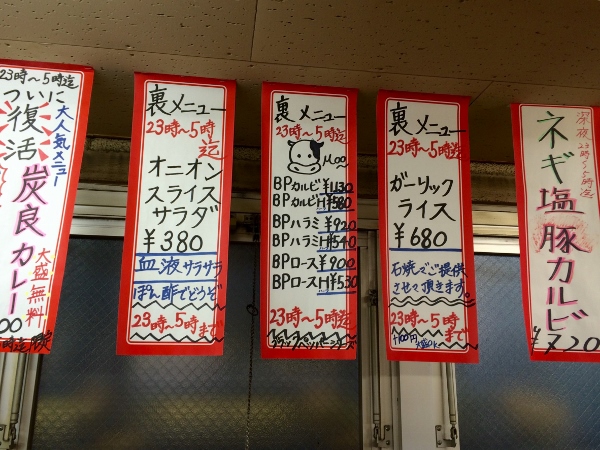 23時～5時迄
ついに
復活
大人気メニュー
炭良カレー
大盛無料
裏メニュー
23時～5時迄
オニオン
スライス
サラダ
¥380
血液サラサラ
ぽん酢でどうぞ
23時～5時まで
裏メニュー
23時～5時迄
BPカルビ ¥1130
BPカルビH¥580
BPハラミ ¥920
BPハラミH¥540
BPロース ¥900
BPロースH¥530
23時～5時迄
裏メニュー
23時～5時迄
ガーリック
ライス
¥680
石焼でご提供
させて頂きます
23時～5時まで
+100円
大盛OK
深夜23時～5時迄
ネギ塩豚カルビ
¥720